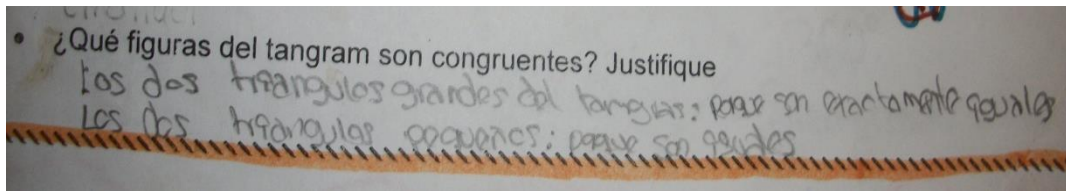 • ¿Qué figuras del tangram son congruentes? Justifique
Los dos triangulos grandes del tangras: porque son exactamente iguales
Los dos triangulos pequeños: porque son iguales